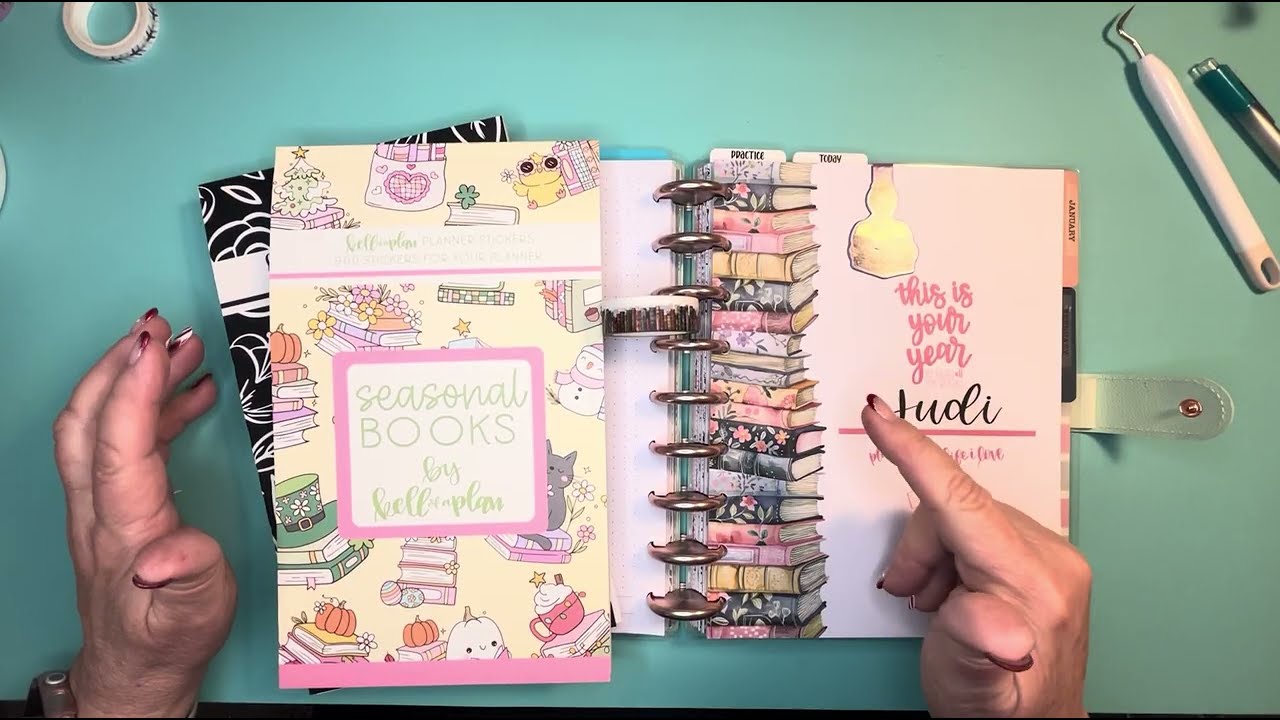 kell of a plan PLANNER STICKERS
900 STICKERS FOR YOUR PLANNER
seasonal
BOOKS
by
kell of a plan
PRACTICE
TODAY
JANUARY
this is
your
year
life i love